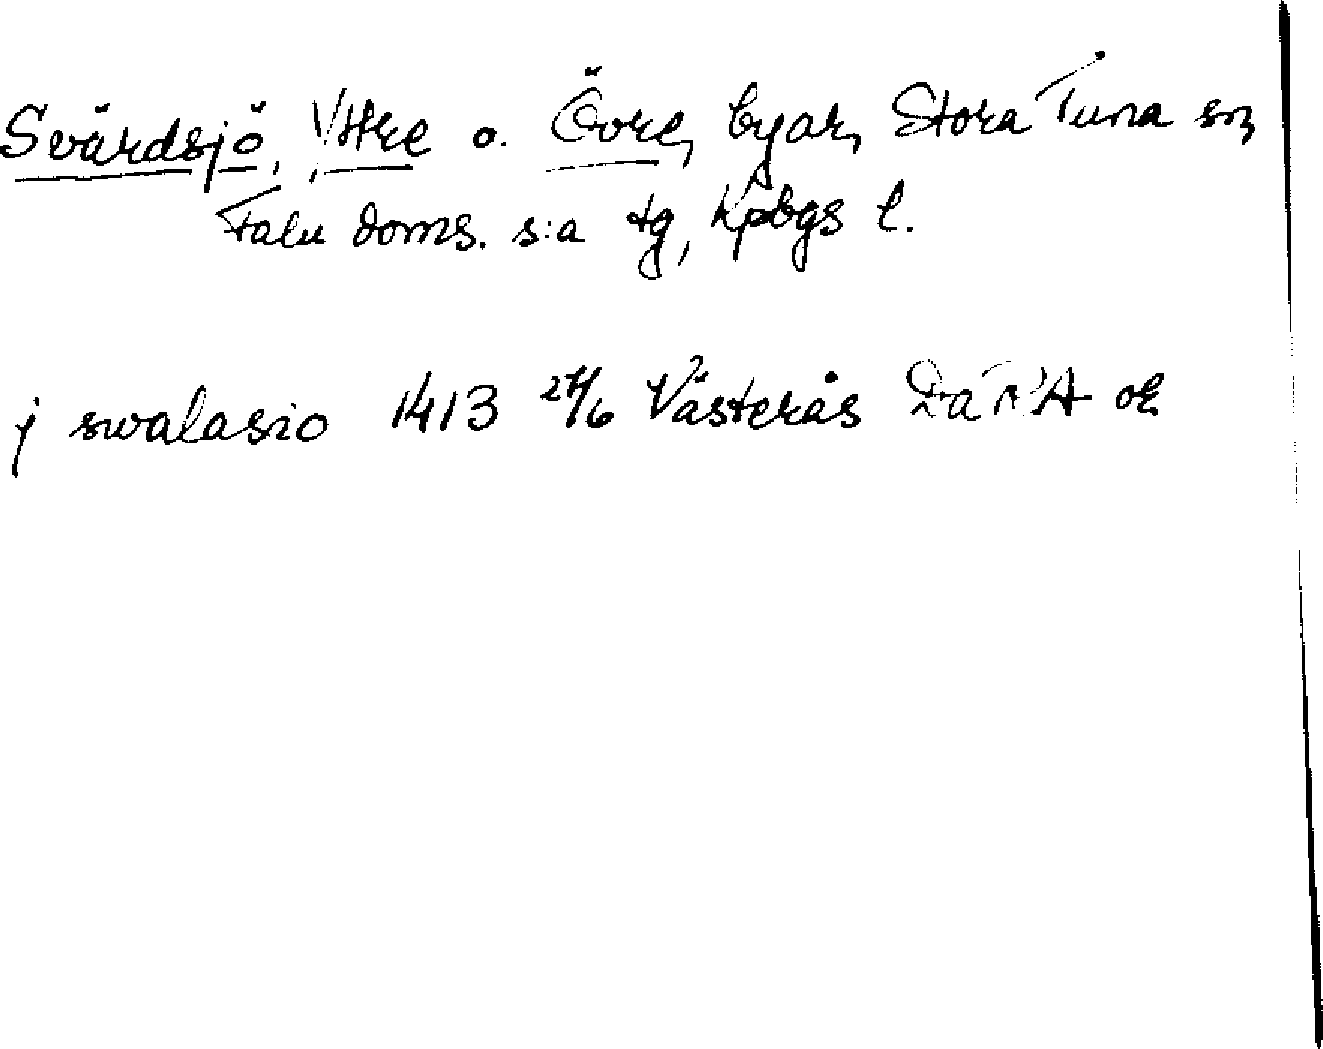 Svärdsjö, Yttre o. Övre, byar, Stora Tuna sn,
Falu doms. s:a tg, Kpbgs l.
j swalasio 1413 27/6 Västerås RA or